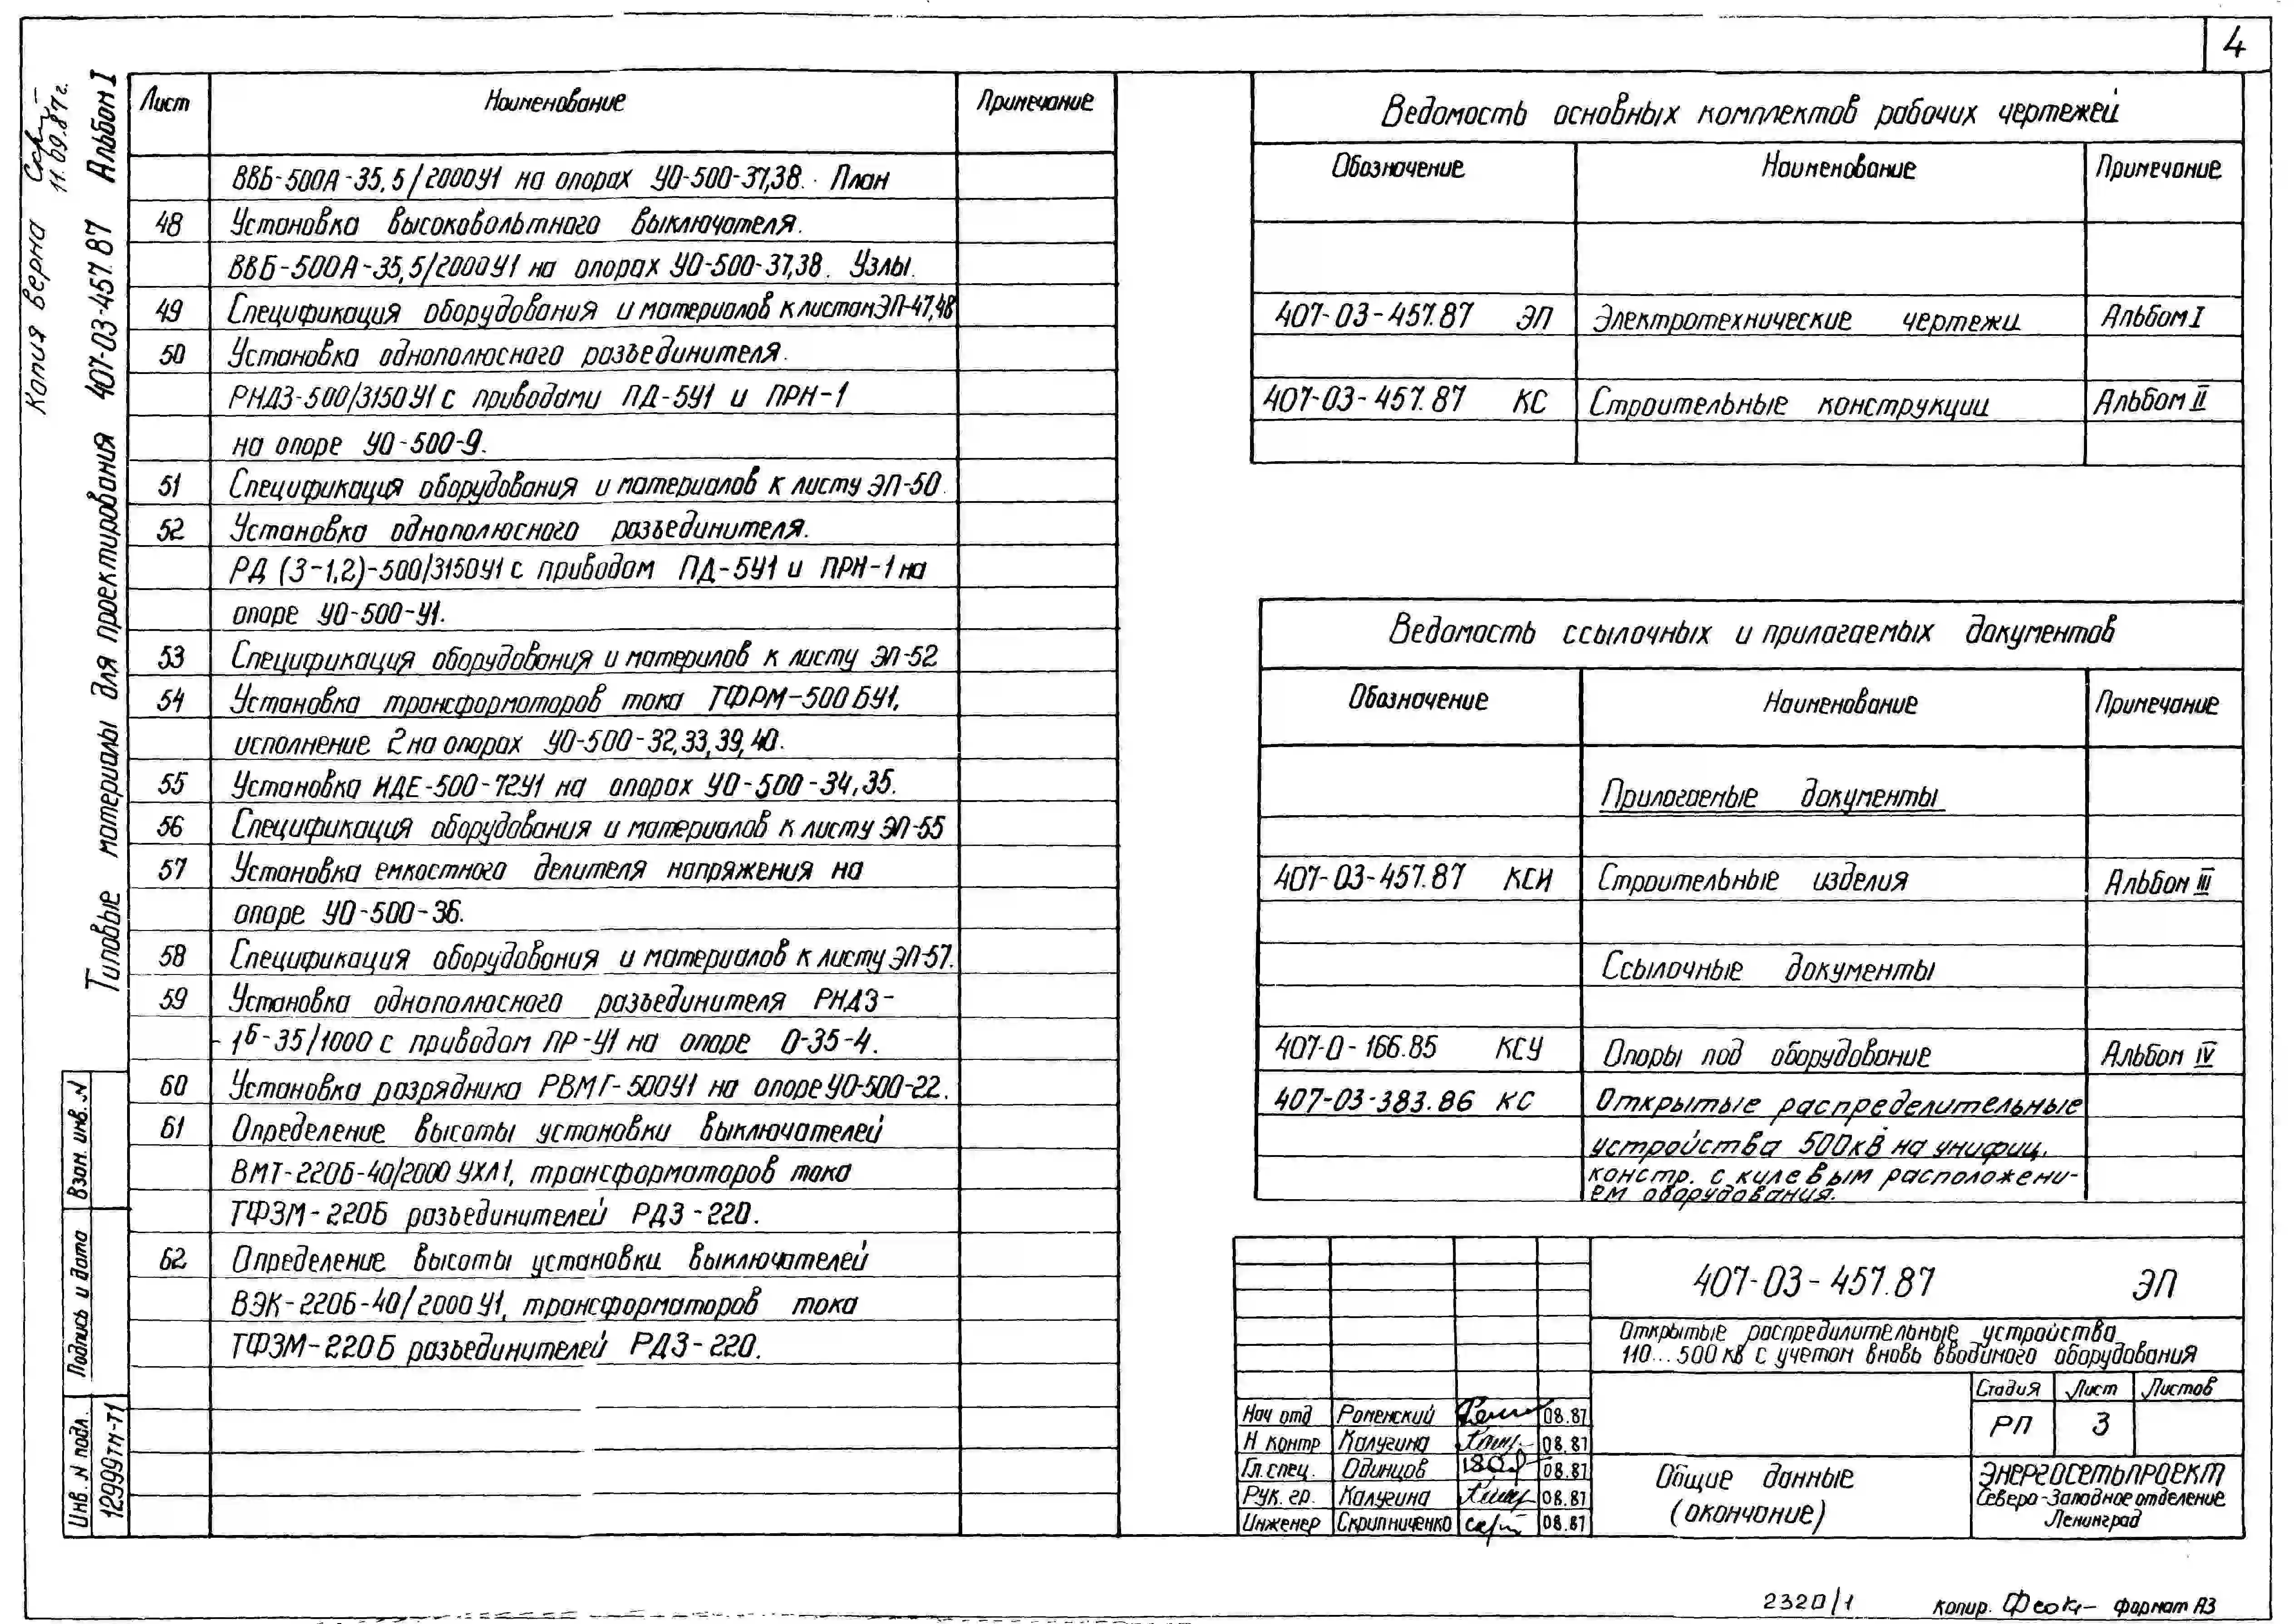 4
Копия верна
11.09.87г.
Типовые материалы для проектирования 407-03-457.87 Альбом I
Лист Наименование Примечание
ВВБ-500А-35,5/2000У1 на опорах УО-500-37,38. План
48 Установка высоковольтного выключателя.
ВВБ-500А-35,5/2000У1 на опорах УО-500-37,38. Узлы.
49 Спецификация оборудования и материалов к листам ЭП-47,48
50 Установка однополюсного разъединителя.
РНДЗ-500/3150У1 с приводами ПД-5У1 и ПРН-1
на опоре УО-500-9.
51 Спецификация оборудования и материалов к листу ЭП-50
52 Установка однополюсного разъединителя.
РД (З-1,2)-500/3150У1 с приводом ПД-5У1 и ПРН-1 на
опоре УО-500-У1.
53 Спецификация оборудования и материлов к листу ЭП-52
54 Установка трансформоторов тока ТФРМ-500БУ1,
исполнение 2 на опорах УО-500-32,33,39,40.
55 Установка НДЕ-500-72У1 на опорах УО-500-34,35.
56 Спецификация оборудования и материалов к листу ЭП-55
57 Установка емкостного делителя напряжения на
опоре УО-500-36.
58 Спецификация оборудования и материалов к листу ЭП-57.
59 Установка однополюсного разъединителя РНДЗ-
-1б-35/1000 с приводом ПР-У1 на опоре О-35-4.
60 Установка разрядника РВМГ-500У1 на опоре УО-500-22.
61 Определение высоты установки выключателей
ВМТ-220Б-40/2000 УХЛ1, трансформаторов тока
ТФЗМ-220Б разъединителей РДЗ-220.
62 Определение высоты установки выключателей
ВЭК-220Б-40/2000У1, трансформаторов тока
ТФЗМ-220Б разъединителей РДЗ-220.
Ведомость основных комплектов рабочих чертежей
Обозначение Наименование Примечание
407-03-457.87 ЭП Электротехнические чертежи Альбом I
407-03-457.87 КС Строительные конструкции Альбом II
Ведомость ссылочных и прилагаемых документов
Обозначение Наименование Примечание
Прилагаемые документы
407-03-457.87 КСИ Строительные изделия Альбом III
Ссылочные документы
407-0-166.85 КСУ Опоры под оборудование Альбом IV
407-03-383.86 КС Открытые распределительные
устройства 500кВ на унифиц.
констр. с килевым расположени-
ем оборудования.
407-03-457.87 ЭП
Открытые распредилительные устройства
110...500 кВ с учетом вновь вводимого оборудования
Стадия Лист Листов
РП 3
Нач отд Роменский 08.87
Н контр Калугина 08.87
Гл. спец. Одинцов 08.87
Рук. гр. Калугина 08.87
Инженер Скрипниченко 08.87
Общие данные
(окончание)
Энергосетьпроект
Северо-Западное отделение
Ленинград
Взам. инв. N
Подпись и дата
Инв. N подл.
12999тм-т1
2320/1 Копир. Формат А3